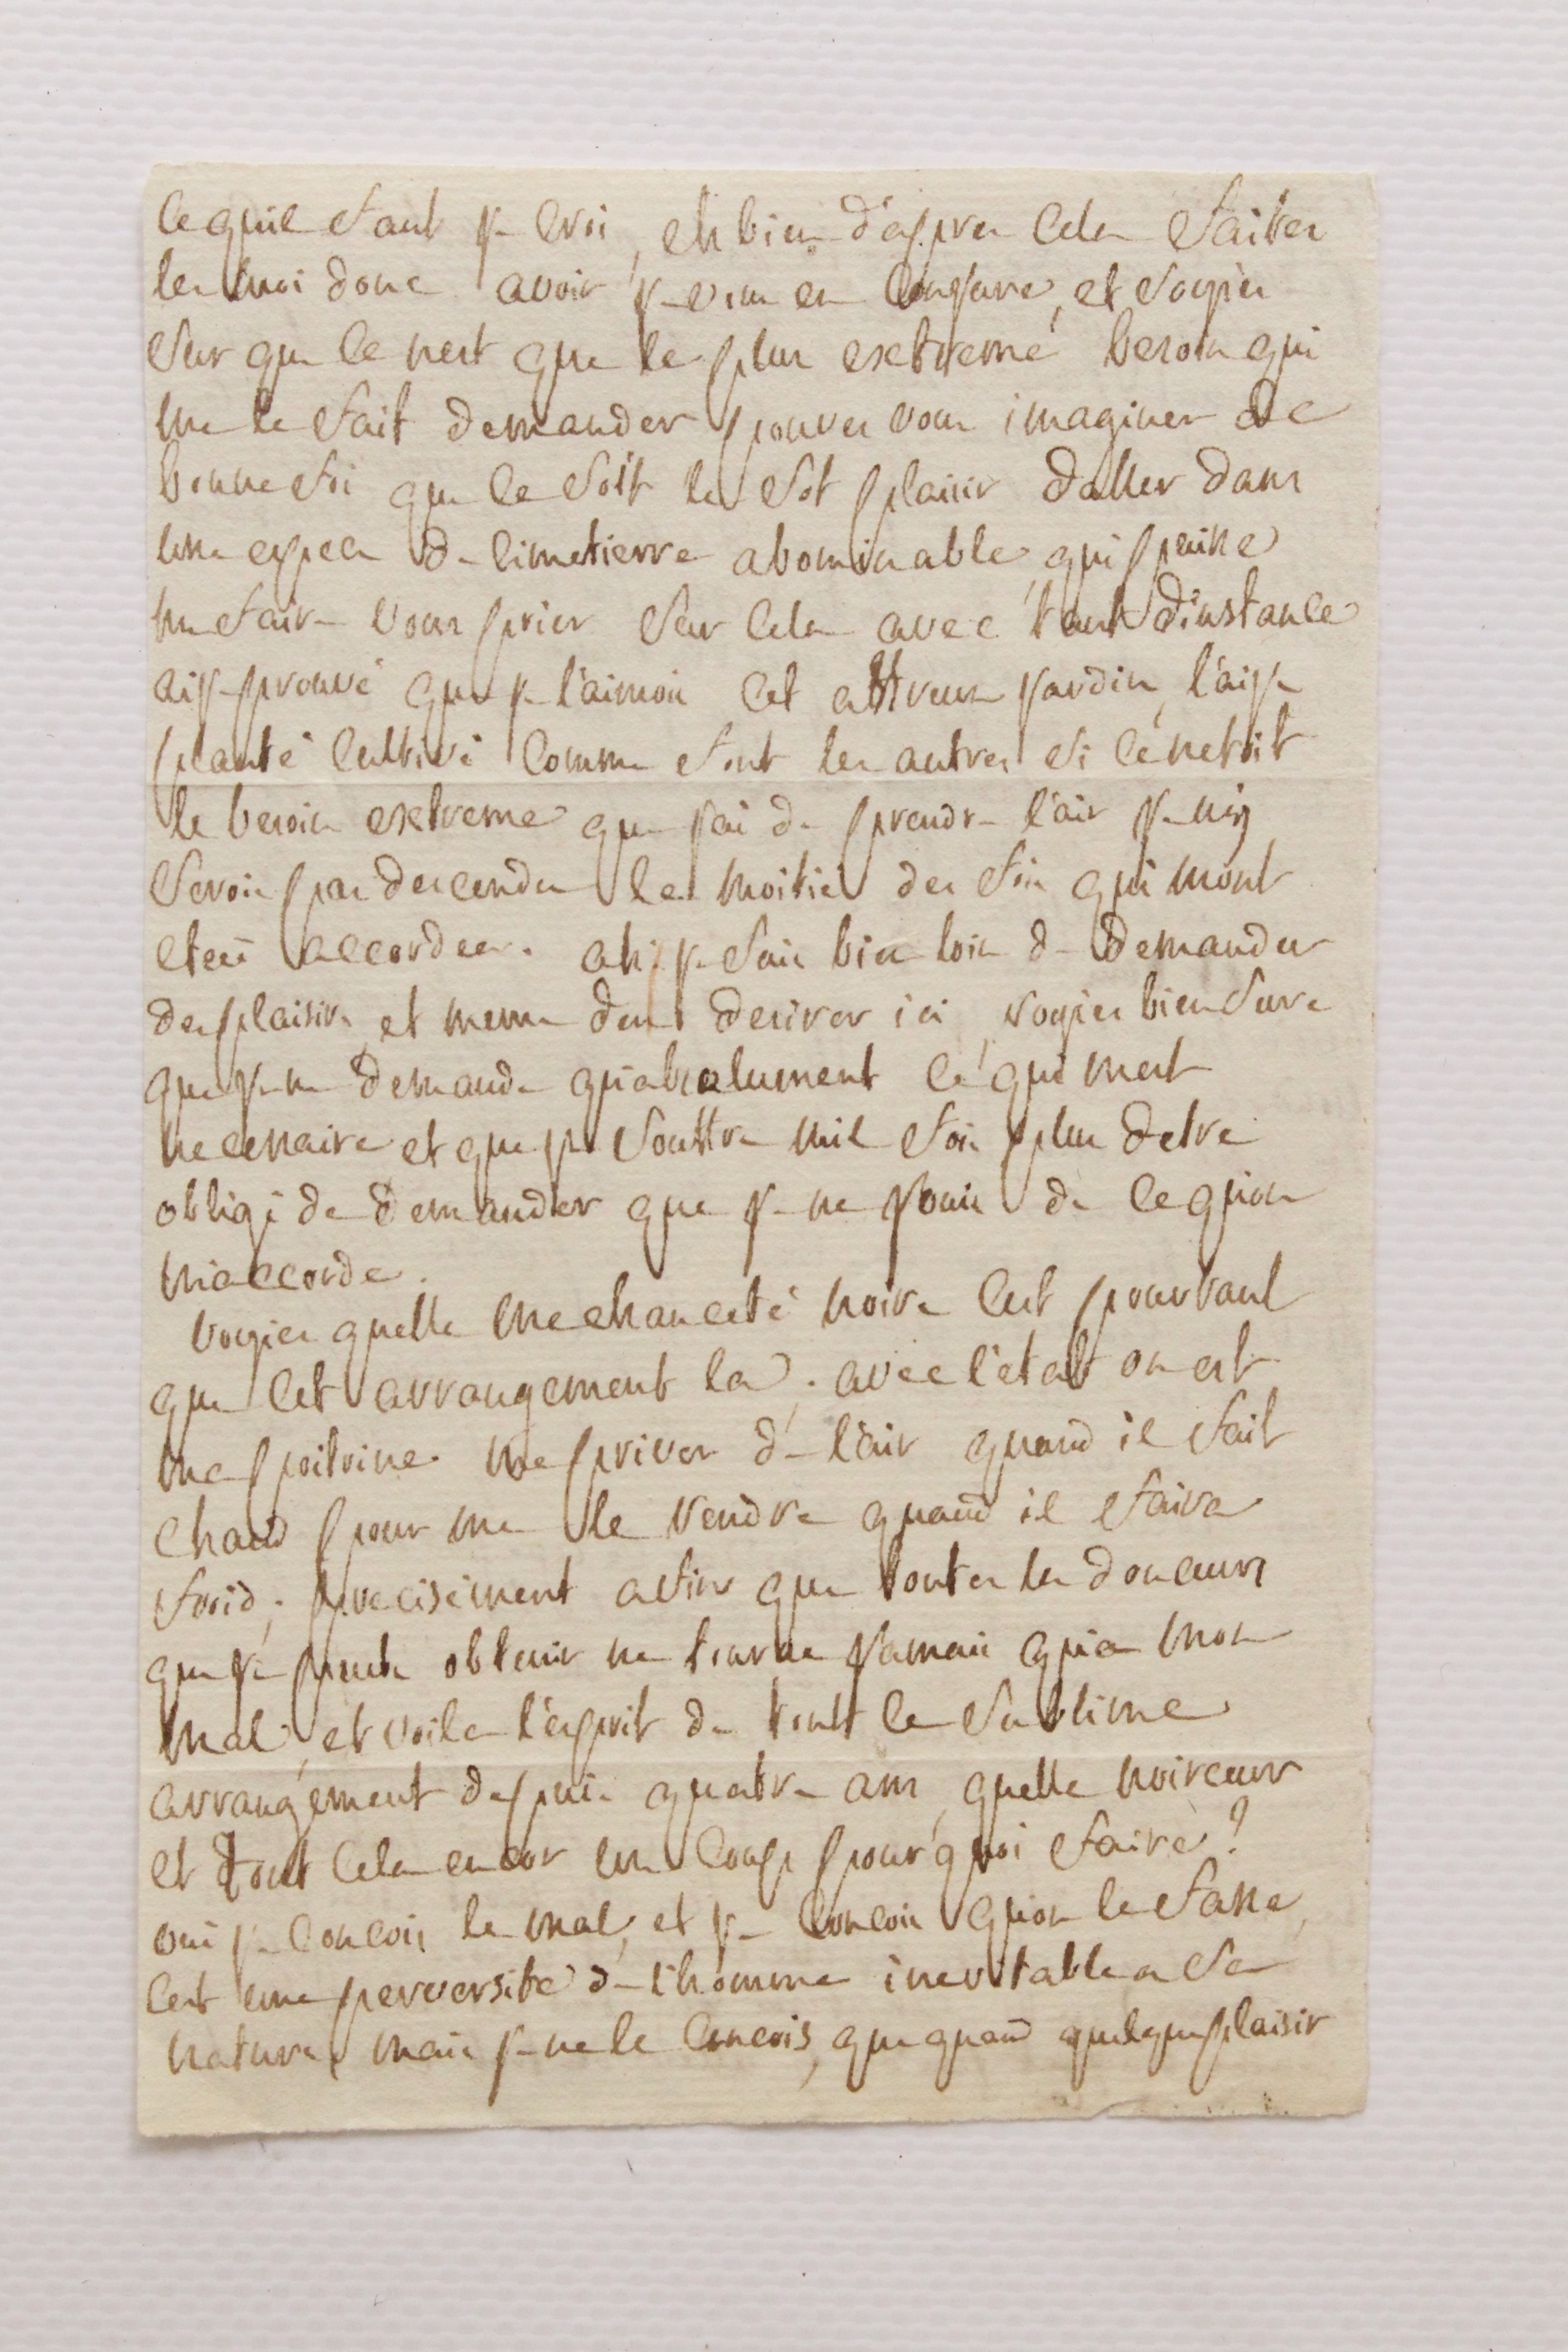 ce quil faut je croi, eh bien d'apres cela faites
les moi donc avoir je vous en conjure, et soyiés
sur que ce nest que le plus extreme besoin qui
me le fait demander pouves vous imaginer de
bonne foi que ce soit le sot plaisir daller dans
une espece de cimetierre abominable, qui puisse
me faire vous prier sur cela avec tant dinstance
ai je prouvé que je l'aimois cet affreux jardin, l'ai je
planté cultivé comme font les autres si cé netoit
le besoin extreme que jai de prendre l'air je niy
serois pas descendu la moitié des fois qui mont
eteés accordees. ah; je suis bien loin de demander
des plaisirs, et meme den desirer ici, soyiés bien sure
que je ne demande qu'absolument cé qui mest
necessaire et que je souffre mil fois plus detre
obligé de demander que je ne jouis de ce qu'on
m'accorde.
voyiés quelle mechanceté noire cest pourtant
que cet arrangement la; avec l'etat ou est
ma poitrine me priver de l'air quand il fait
chaud pour me le rendre quand il faira
froid; precisément afin que toutes les douceurs
que je puisse obtenir ne tourne jamais qu'a mon
mal; et voila l'esprit de tout le sublime
arrangement depuis quatre ans, quelle noirceur
et tout cela encor un coup pourquoi faire?
oui je conçois le mal, et je conçois qu'on le fasse,
cest une perversité de l'homme inevitable a sa
nature, mais je ne le concois, que quand quelque plaisir